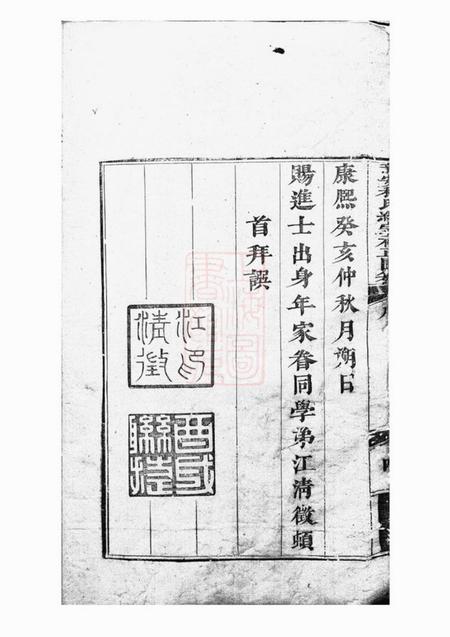 康熙癸亥仲秋月朔日
賜進士出身年家眷同學弟江清徵頓
首拜譔
江印清徵